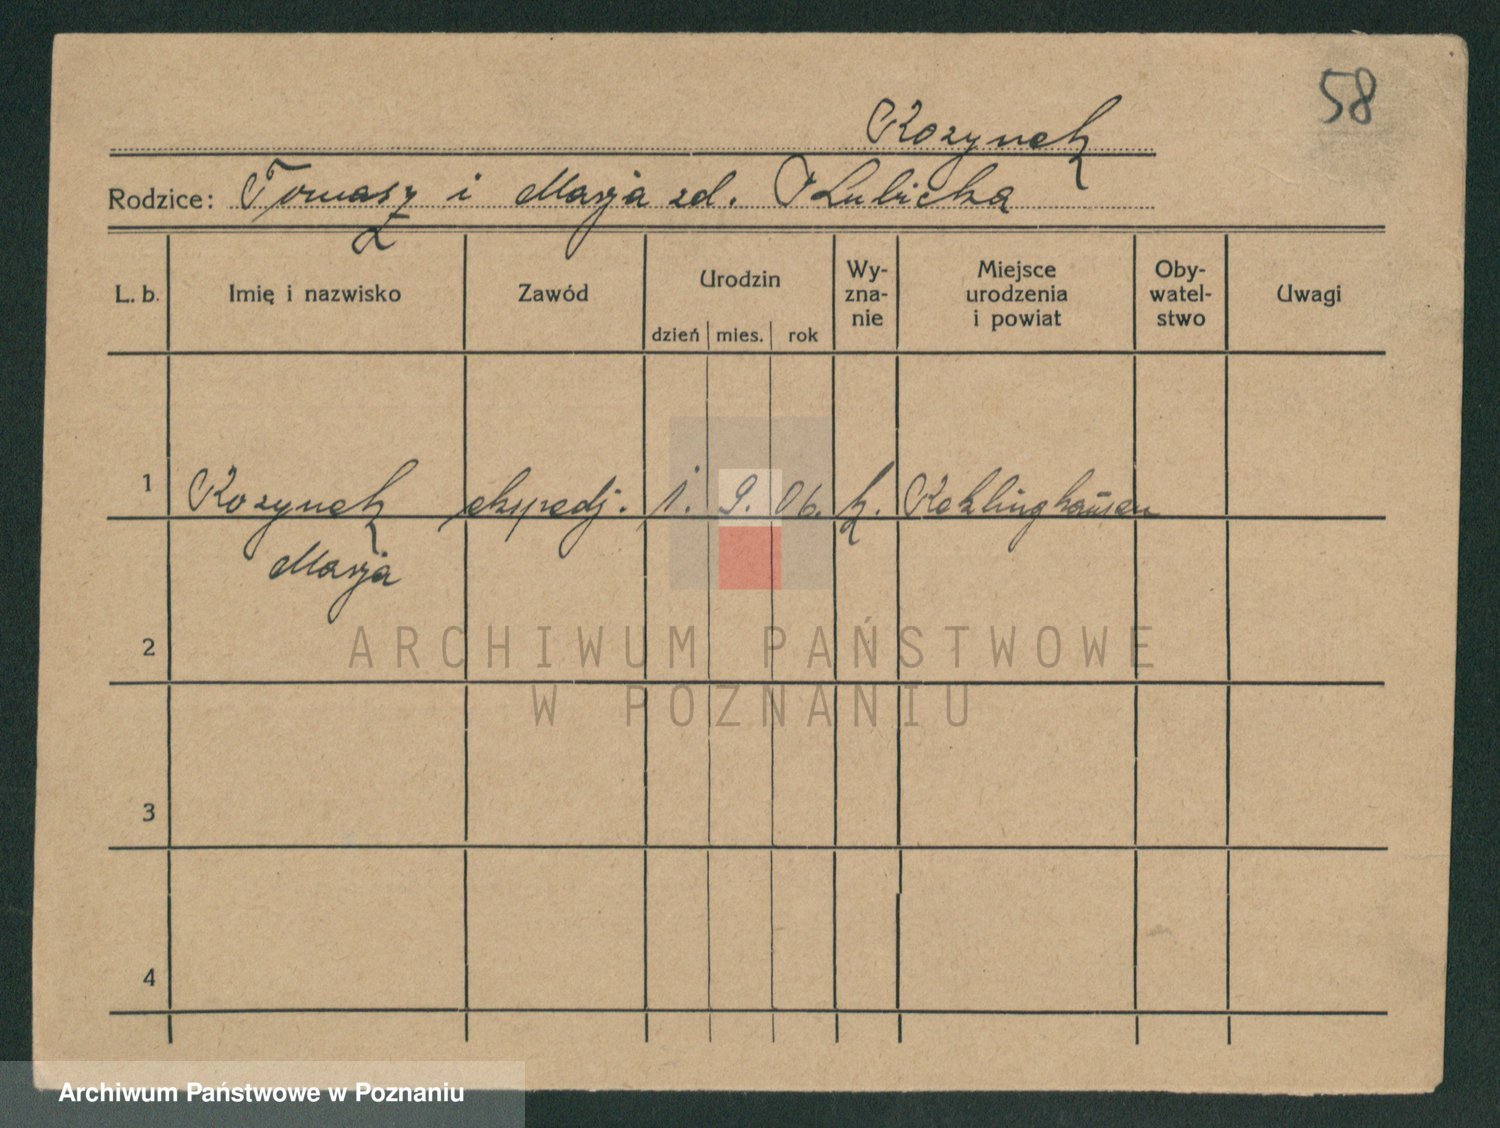 58
Kozynek
Rodzice: Tomasz i Marja zd. Kulicka
L. b. Imię i nazwisko Zawód Urodzin Wy-zna-nie Miejsce urodzenia i powiat Oby-watel-stwo Uwagi
dzień mies. rok
1 Kozynek ekspedj. 1. 9. 06. k. Reklinghausen
Marja
2
ARCHIWUM PAŃSTWOWE
W POZNANIU
3
4
Archiwum Państwowe w Poznaniu